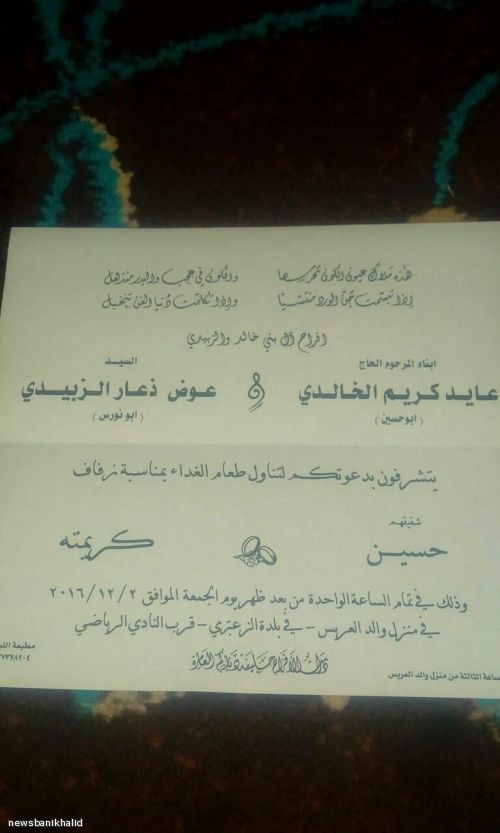 هذه ملاك عيون الكون تحرسها والكون في عجب والبدر منذهل
إذا تبسمت جن الورد منتشيا وإذا تكلمت دنيا الفن تبتهل
افراح آل بني خالد والزبيدي
ابناء المرحوم الحاج
السيد
عايد كريم الخالدي و عوض ذعار الزبيدي
(ابو حسين)
(ابو نورس)
يتشرفون بدعوتكم لتناول طعام الغداء بمناسبة زفاف
شقيقهم
حسين كريمته
وذلك في تمام الساعة الواحدة من بعد ظهر يوم الجمعة الموافق ٢٠١٦/١٢/٢
في منزل والد العريس - في بلدة الزعتري - قرب النادي الرياضي
دامت الأفراح حليفة دياركم العامرة
الساعة الثالثة من منزل والد العريس
مطبعة
newsbanikhalid